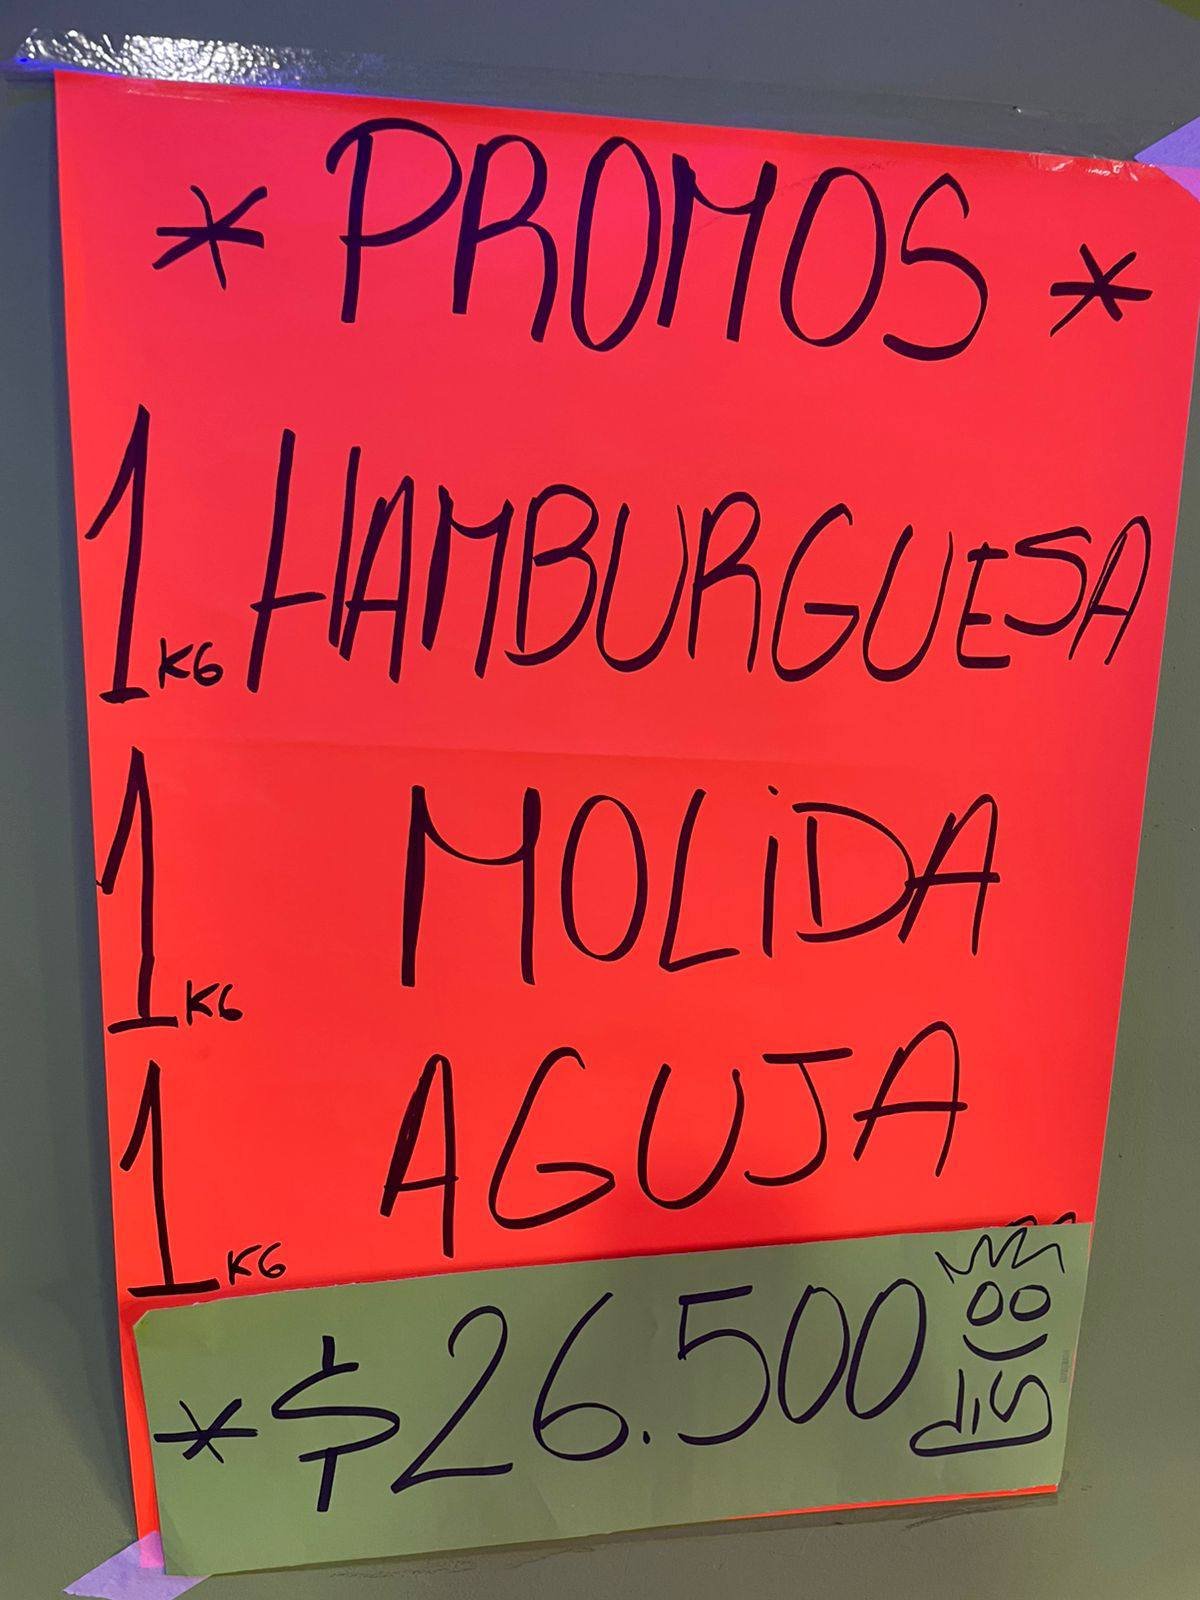 * PROMOS *
1 KG HAMBURGUESA
1 KG MOLiDA
1 KG AGUJA
* $26.500